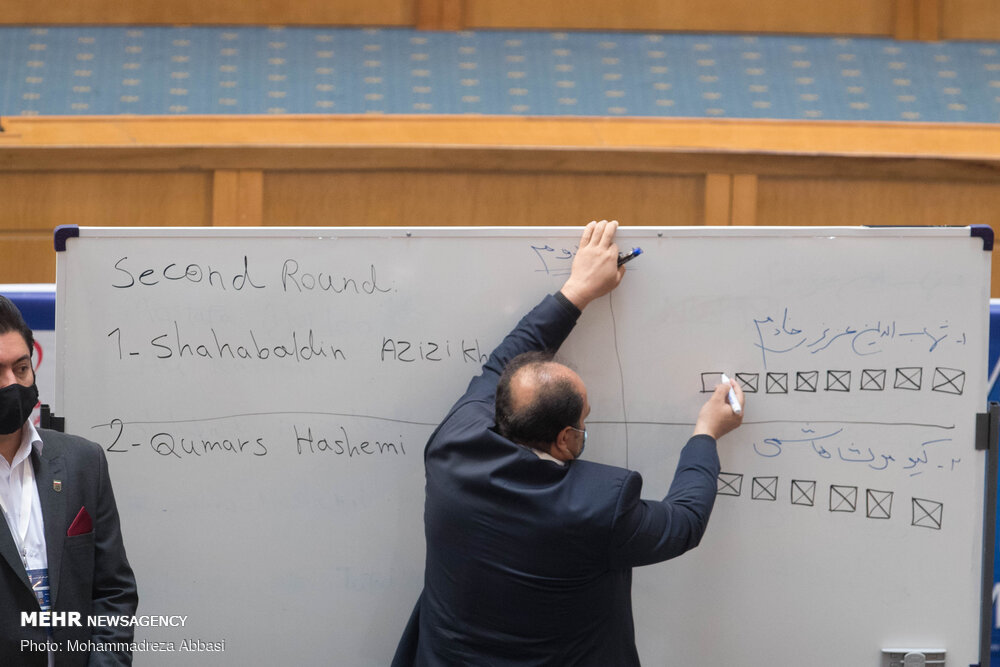 Second Round:
1- Shahabaldin AZIZI Kh
2- Qumars Hashemi
دوم
۱. شهاب الدین عزیزی خادم
۲- کیومرث هاشمی
MEHR NEWSAGENCY
Photo: Mohammadreza Abbasi